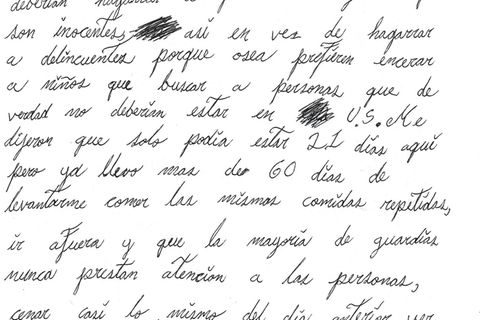 deberian
son inocentes, así en vez de hagarrar
a delincuentes porque osea prefieren encerar
a niños que buscar a personas que de
verdad no deberian estar en U.S. Me
dijeron que solo podia estar 21 días aqui
pero ya llevo mas de 60 días de
levantarme comer las mismas comidas repetidas,
ir afuera y que la mayoria de guardias
nunca prestan atencion a las personas,
cenar casi lo mismo del dia anterior ver